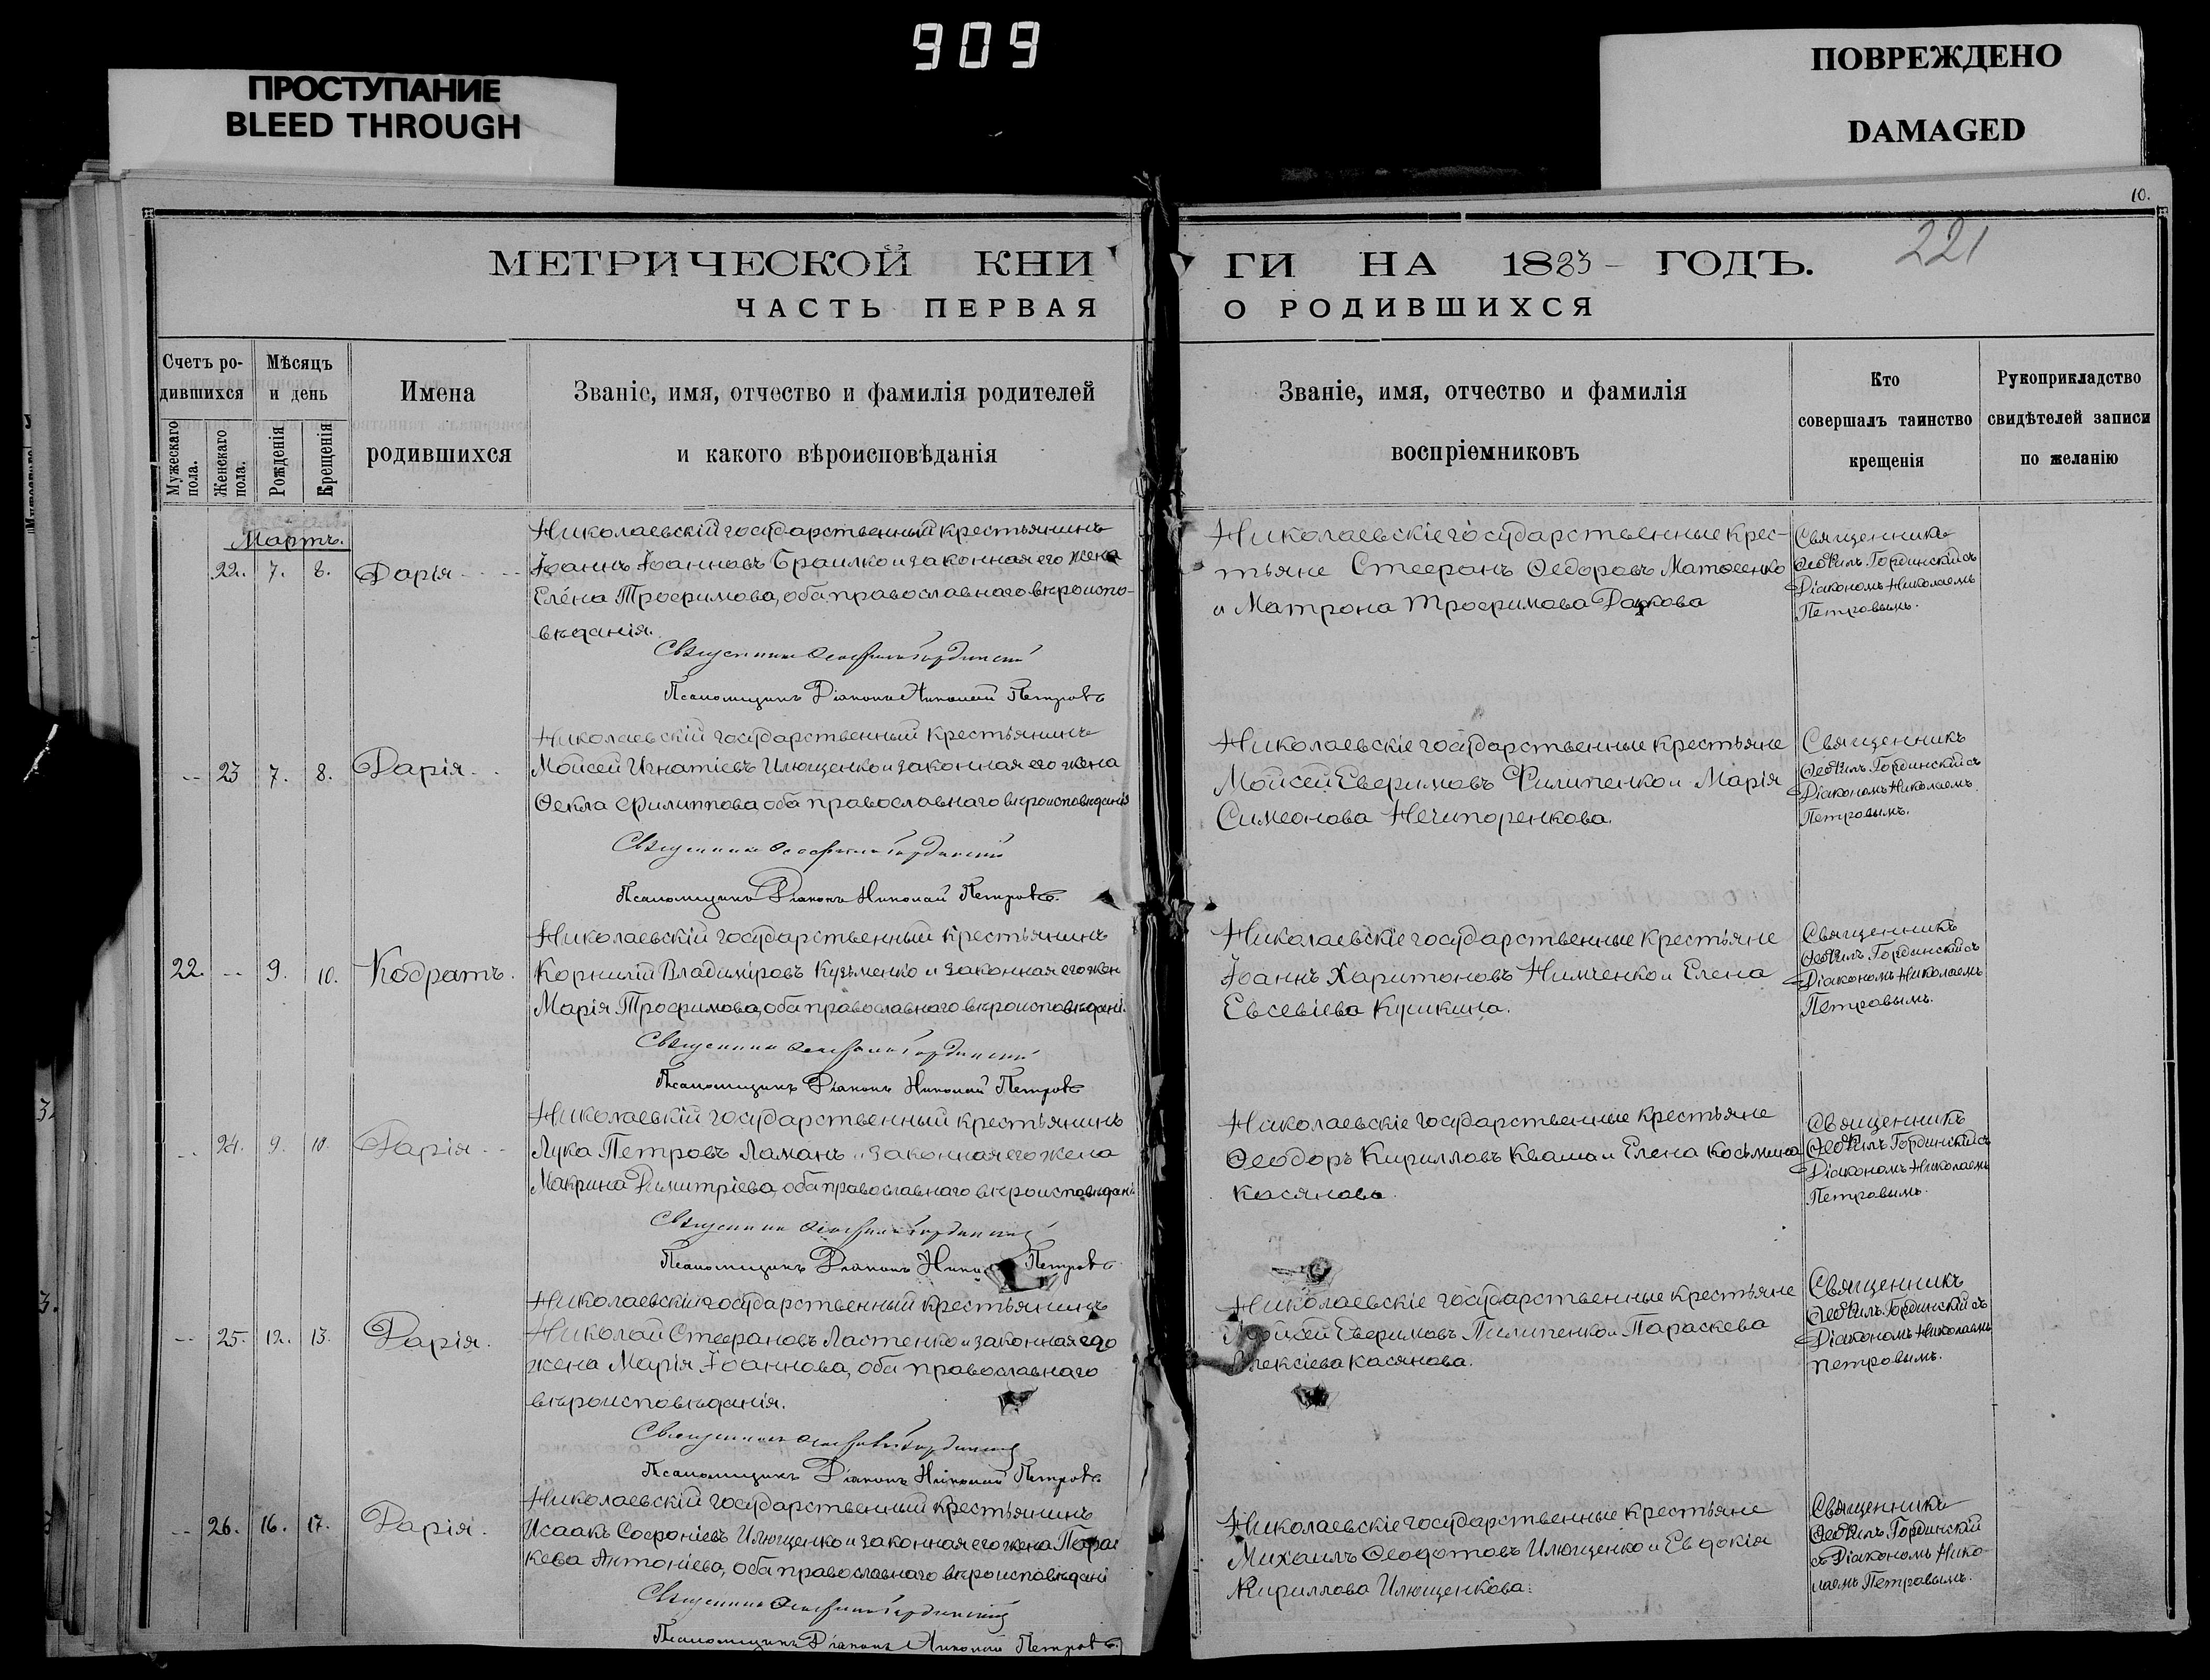 909
ПРОСТУПАНИЕ
BLEED THROUGH
ПОВРЕЖДЕНО
DAMAGED
10.
221
МЕТРИЧЕСКОЙ КНИ
ГИ НА 1883 ГОДЪ.
ЧАСТЬ ПЕРВАЯ
О РОДИВШИХСЯ
Счетъ ро-
дившихся
Мужескаго пола.
Женскаго пола.
Мѣсяцъ
и день
Рожденія
Крещенія
Имена
родившихся
Званіе, имя, отчество и фамилія родителей
и какого вѣроисповѣданія
Званіе, имя, отчество и фамилія
воспріемниковъ
Кто
совершалъ таинство
крещенія
Рукоприкладство
свидѣтелей записи
по желанію
Мартъ.
22. 7. 8. Дарія
Николаевскій государственный крестьянинъ
Іоаннъ Іоанновъ Браилко и законная его жена
Елена Трофимова, оба православнаго вѣроиспо-
вѣданія.
Священникъ Ѳеофилъ Гординскій
Псаломщикъ Діаконъ Николай Петровъ
Николаевскіе государственные крес-
тьяне Стефанъ Ѳедоровъ Матвеенко
и Матрона Трофимова
Священникъ
Ѳеофилъ Гординскій съ
Діакономъ Николаемъ
Петровымъ.
-- 23 7. 8. Дарія.
Николаевскій государственный крестьянинъ
Мойсей Игнатіевъ Илющенко и законная его жена
Ѳекла Филиппова, оба православнаго вѣроисповѣданія
Священникъ Ѳеофилъ Гординскій
Псаломщикъ Діаконъ Николай Петровъ.
Николаевскіе государственные крестьяне
Мойсей Евфимовъ Филипенко и Марія
Симеонова Нечипоренкова.
Священникъ
Ѳеофилъ Гординскій съ
Діакономъ Николаемъ
Петровымъ.
22. -- 9. 10. Кодратъ.
Николаевскій государственный крестьянинъ
Корнилій Владиміровъ Кузьменко и законная его жен
Марія Трофимова, оба православнаго вѣроисповѣдані.
Священникъ Ѳеофилъ Гординскій
Псаломщикъ Діаконъ Николай Петровъ
Николаевскіе государственные крестьяне
Іоаннъ Харитоновъ Нимченко и Елена
Евсевіева
Священникъ
Ѳеофилъ Гординскій съ
Діакономъ Николаемъ
Петровымъ.
-- 24. 9. 10. Дарія
Николаевкій государственный крестьянинъ
Лука Петровъ Ламанъ и законная его жена
Макрина Димитріева, оба православнаго вѣроисповѣдані
Священникъ Ѳеофилъ Гординскій
Псаломщикъ Діаконъ Нико Петровъ
Николаевскіе государственные крестьяне
Ѳеодоръ Кирилловъ Кваша и Елена Косьмина
Касянова.
Священникъ
Ѳеофилъ Гординскій съ
Діакономъ Николаемъ
Петровымъ.
-- 25. 12. 13. Дарія.
Николаевскій государственный крестьянинъ
Николай Стефановъ Ластенко и законная его
жена Марія Іоаннова, оба православнаго
вѣроисповѣданія.
Священникъ Ѳеофилъ Гординскій
Псаломщикъ Діаконъ Николай Петровъ
Николаевскіе государственные крестьяне
Мойсей Евфимовъ Пилипенко и Параскева
Алексіева Касянова.
Священникъ
Ѳеофилъ Гординскій съ
Діакономъ Николаемъ
Петровымъ.
-- 26. 16. 17. Дарія.
Николаевскій государственный крестьянинъ
Исаакъ Софроніевъ Илющенко и законная его жена Парас
кева Антоніева, оба православнаго вѣроисповѣдані
Священникъ Ѳеофилъ Гординскій
Псаломщикъ Діаконъ Николай Петровъ.
Николаевскіе государственные крестьяне
Михаилъ Ѳеодотовъ Илющенко и Евдокія
Кириллова Илющенкова.
Священникъ
Ѳеофилъ Гординскій
съ Діакономъ Нико-
лаемъ Петровымъ.